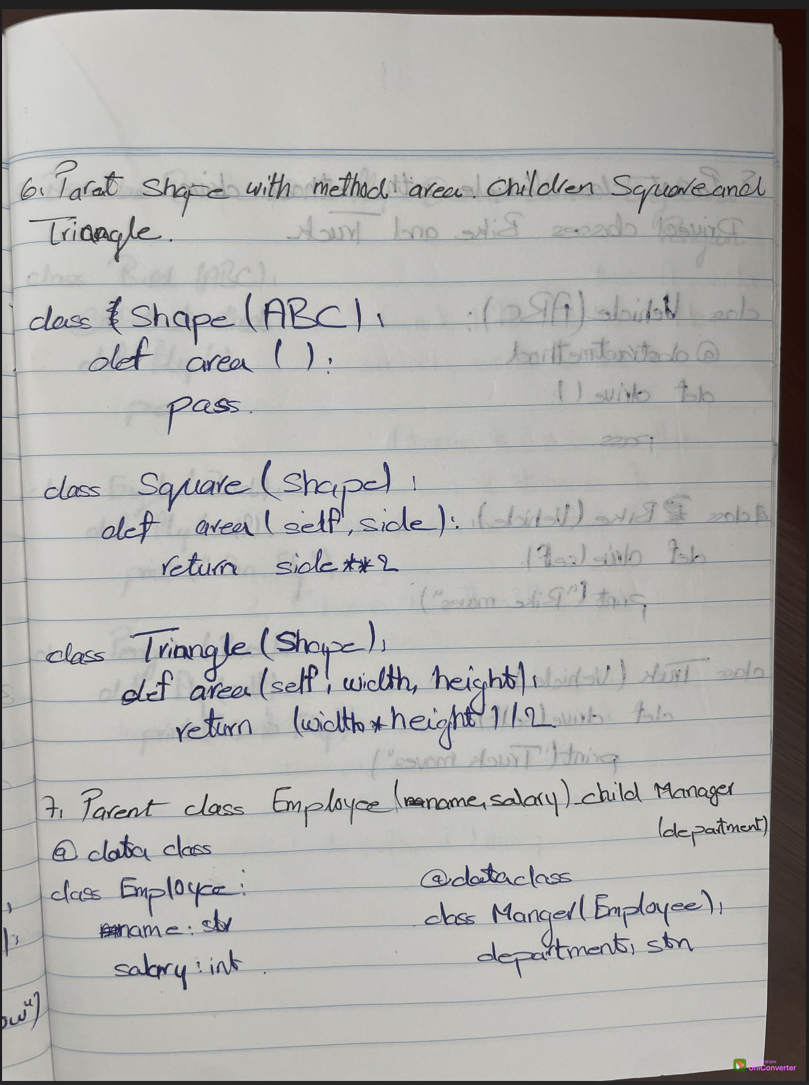 6. Parat Shape with method area. Children Square and
Triangle.
class Shape (ABC):
def area ( ):
pass.
class Square (Shape):
def area (self, side):
return side**2
class Triangle (Shape):
def area (self, width, height):
return (width * height)//2
7. Parent class Employee (name, salary) child Manager
(department)
@ data class
class Employee:
name: str
salary: int
@dataclass
class Manger (Employee):
department: str
ow")
UniConverter